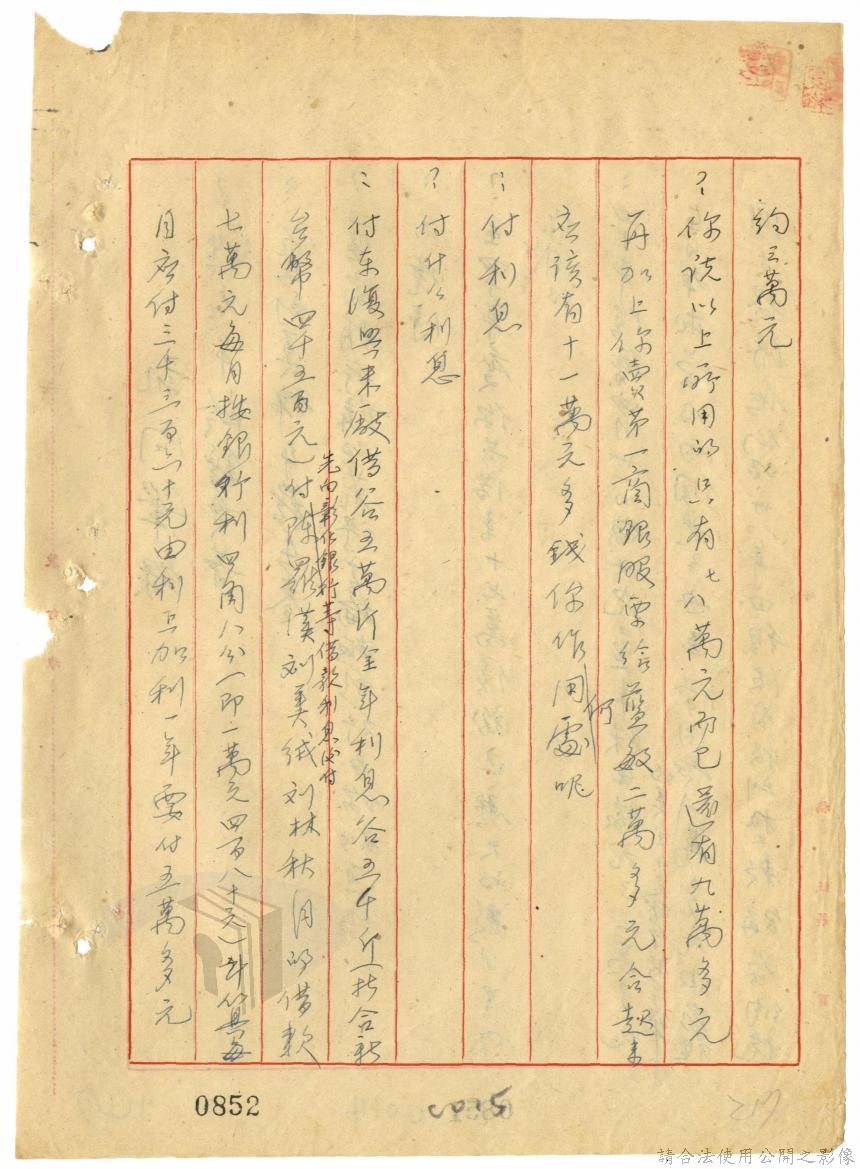 約三萬元
？你說以上所用的只有七八萬元而已還有九萬多元
再加上你賣第一商銀股票給藍敏二萬多元合起來
應該有十一萬元多錢你作何用處呢
：付利息
？付什么利息
：付东復興米廠借谷五萬斤全年利息谷五千斤(折合新
台幣四千五百元)付陈羅漢刘美绒刘林秋月的借款
先向彰化銀行等借款利息後付
七萬元每月按銀行利四角八分(即一萬元四百八十元)計算每
月应付三千三百六十元由利上加利一年要付五萬多元
0852
217
請合法使用公開之影像